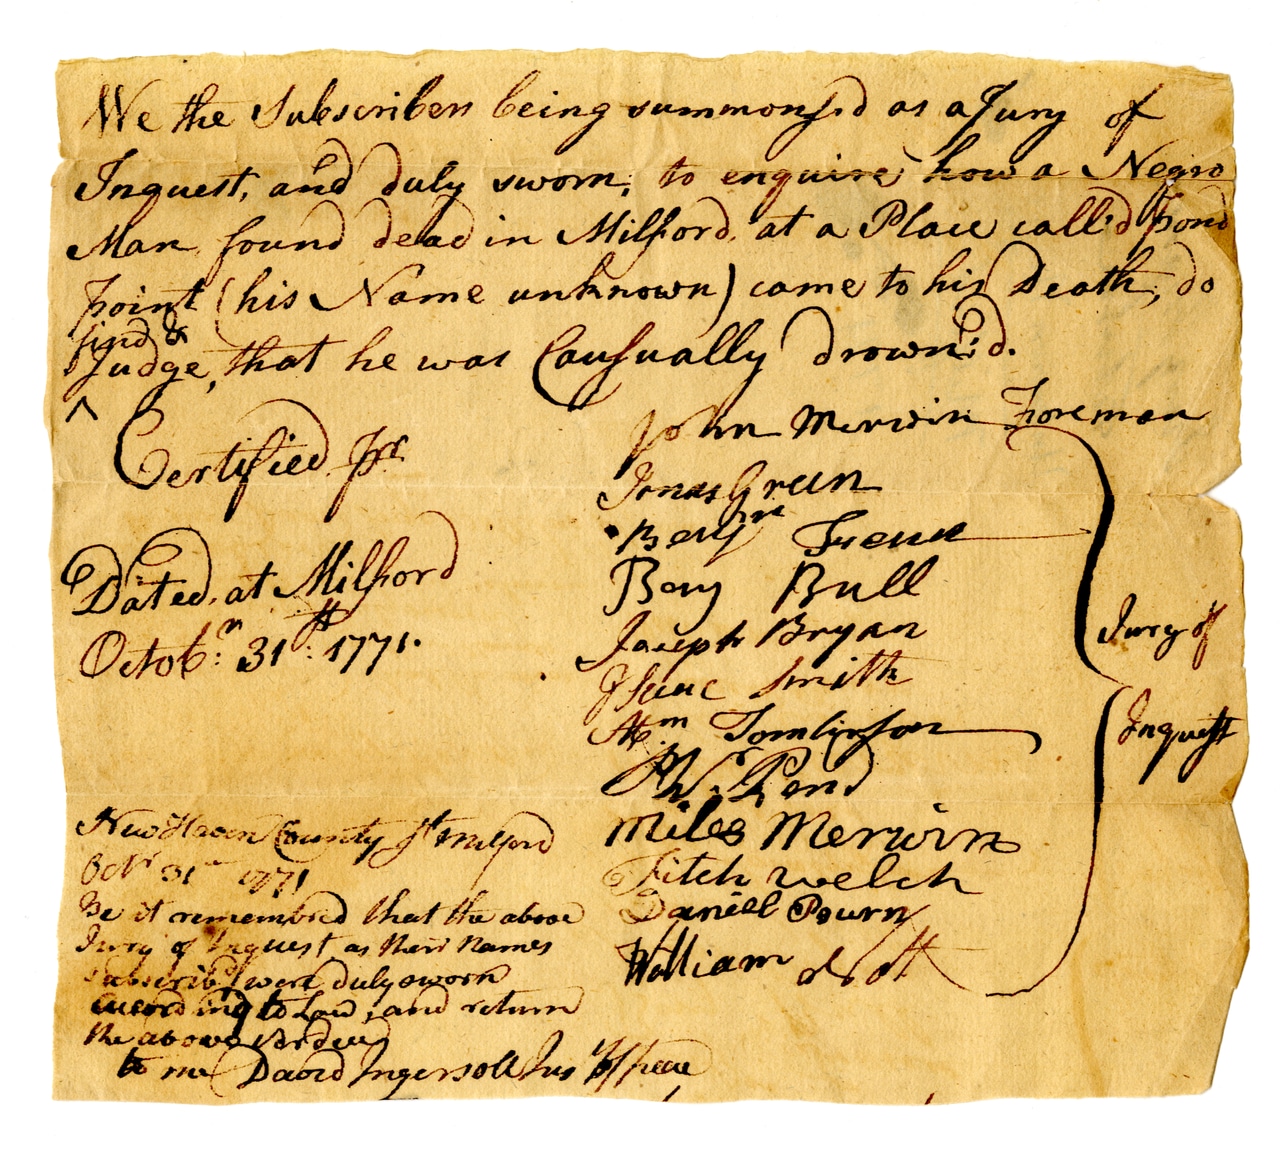 We the Subscribers being summons'd as a Jury of
Inquest, and duly sworn, to enquire how a Negro
Man found dead in Milford, at a Place call'd Pond
Point (his Name unknown) came to his Death, do
find &
Judge, that he was Causually drown'd.
^
Certified pr
John Merwin Foreman
Jonas Green
Benjn Fenn
Benj Bull
Joseph Bryan
Isaac Smith
Wm Tomlinson
Miles Merwin
Fitch Welch
Daniel
William
Jury of
Inquest
Dated at Milford
Octobr: 31st: 1771.
New Haven County ss Milford
Octr 31st 1771
Be it remembred that the above
Jury of Inquest as their Names
Subscribd were duly sworn
according to Law, and return
the above
to me David Ingersoll Jus Peace